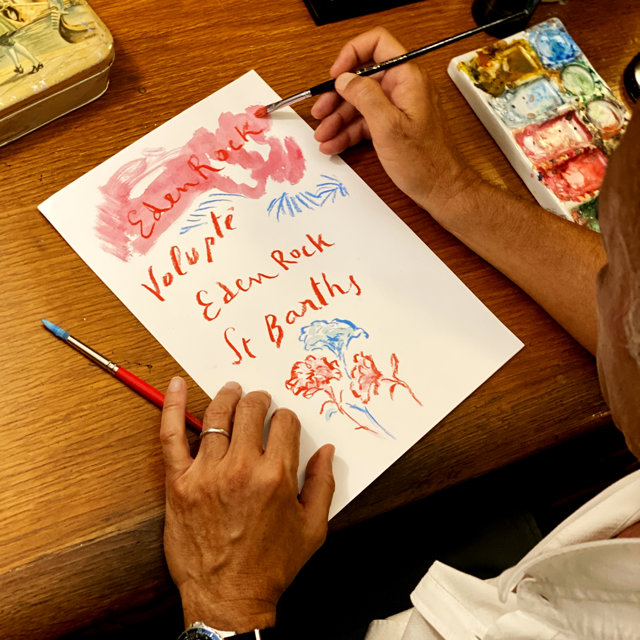 Eden Rock
Volupté
Eden Rock
St Barths